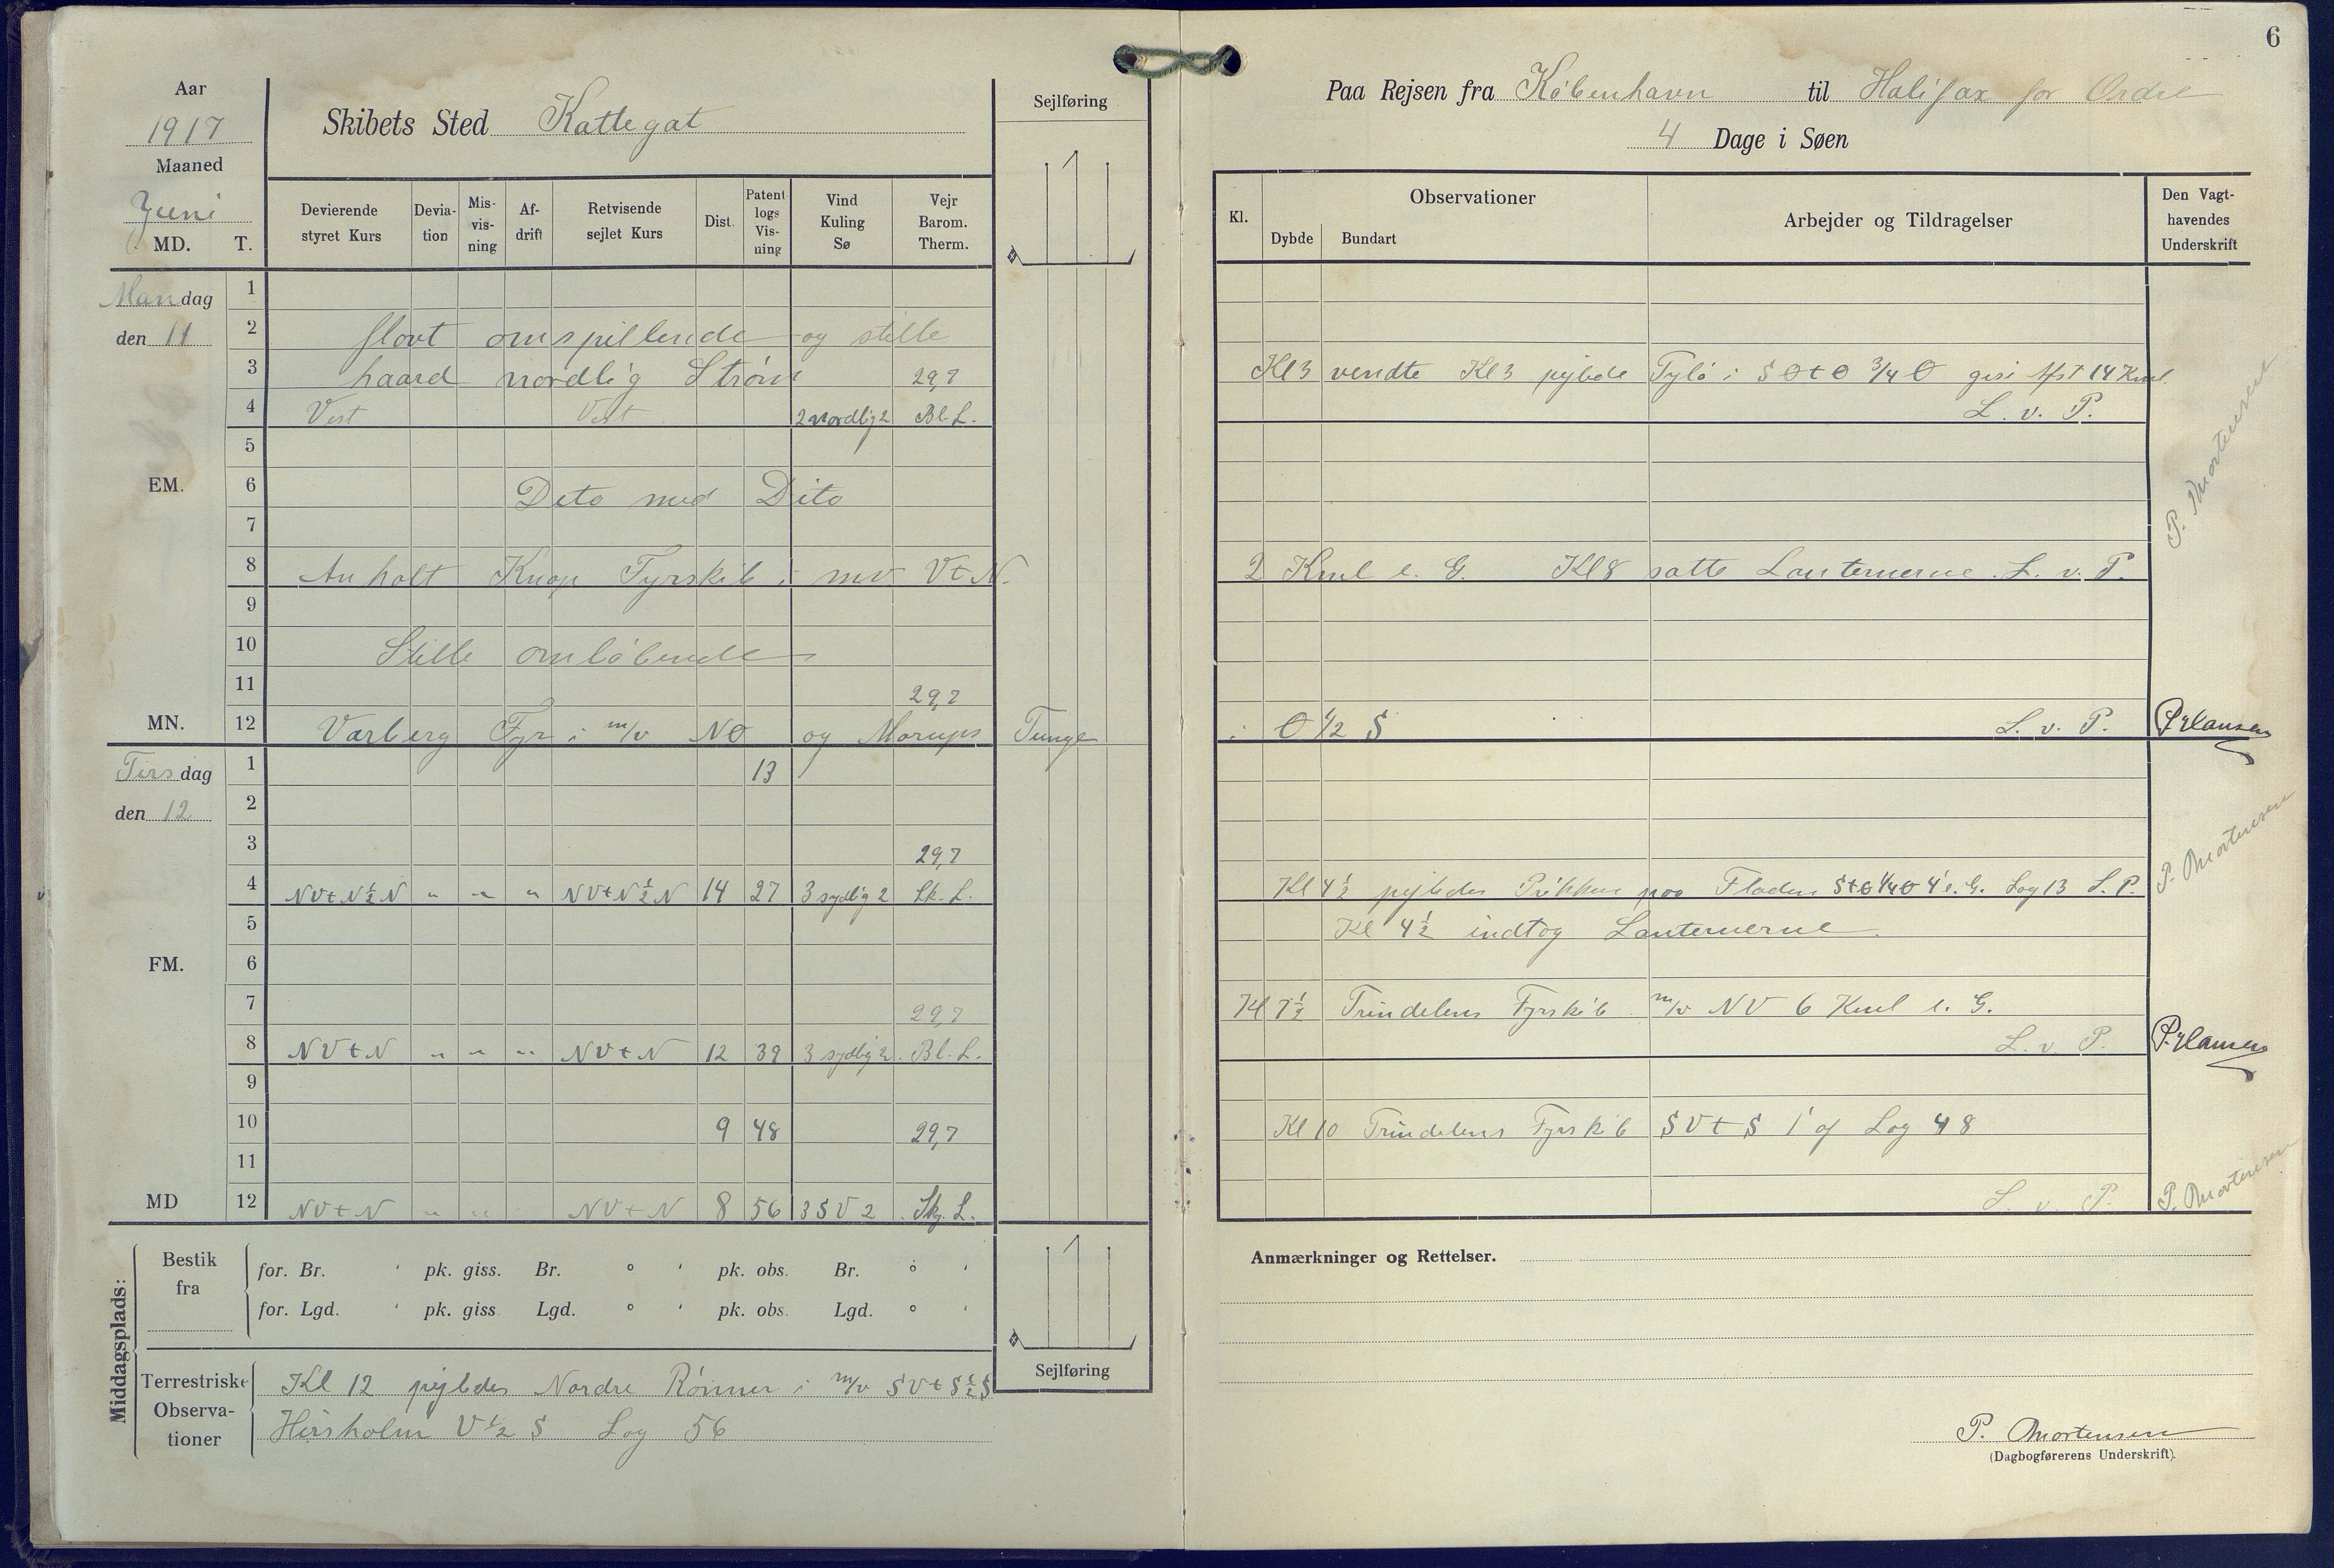 6
Aar
1917
Maaned
Juni
MD. T.
Skibets Sted Kattegat
Sejlføring
Devierende styret Kurs
Devia-tion
Mis-vis-ning
Af-drift
Retvisende sejlet Kurs
Dist.
Patent logs Vis-ning
Vind Kuling Sø
Vejr Barom. Therm.
Mandag
den 11
1
2 flovt omspillende og stille
3 haard nordlig Strøm 29,7
4 Vest Vest 2 nordlig 2 Bl. L.
5
EM. 6 Deto med Dito
7
8 Anholt Knop Fyrskib i mv V t N.
9
10 Stille omløbende
11 29,7
MN. 12 Varberg Fyr i m/v NO og Morups Tunge
Tirsdag
den 12
1 13
2
3 29,7
4 NVtN½N " " " NVtN½N 14 27 3 sydlig 2 Sk. L.
5
FM. 6
7 29,7
8 NVtN " " " NVtN 12 39 3 sydlig 2 Bl. L.
9
10 9 48 29,7
11
MD 12 NVtN " " NVtN 8 56 3 SV 2 Sky. L.
Middagsplads:
Bestik fra
for. Br. ' pk. giss. Br. ° ' pk. obs. Br. ° '
for. Lgd. ' pk. giss Lgd. ° ' pk. obs. Lgd. ° '
Sejlføring
Terrestriske Observa-tioner
Kl 12 pejledes Nordre Rønner i m/v SVtS½S
Hirsholm V½S Log 56
Paa Rejsen fra København til Halifax for Ordre
4 Dage i Søen
Kl.
Observationer
Dybde
Bundart
Arbejder og Tildragelser
Den Vagt-havendes Underskrift
Kl 3 vendte Kl 3 pejlede Tylø i SOtO ¾ O giss Afst 14 Kml.
L. v. P.
P. Mortensen
2 Kml e. G. Kl 8 satte Lanternerne. L. v. P.
i O ½ S L. v. P. P Hansen
Kl 4½ pejledes Prikken paa Fladen StO¼O 4' e. G. Log 13 L. P.
P. Mortensen
Kl 4½ indtog Lanternerne.
Kl 7½ Trindelens Fyrskib m/v NV 6 Kml e. G.
L. v. P. P. Hansen
Kl 10 Trindelens Fyrskib SVtS 1' af Log 48
L. v. P. P. Mortensen
Anmærkninger og Rettelser.
P. Mortensen
(Dagbogførerens Underskrift).